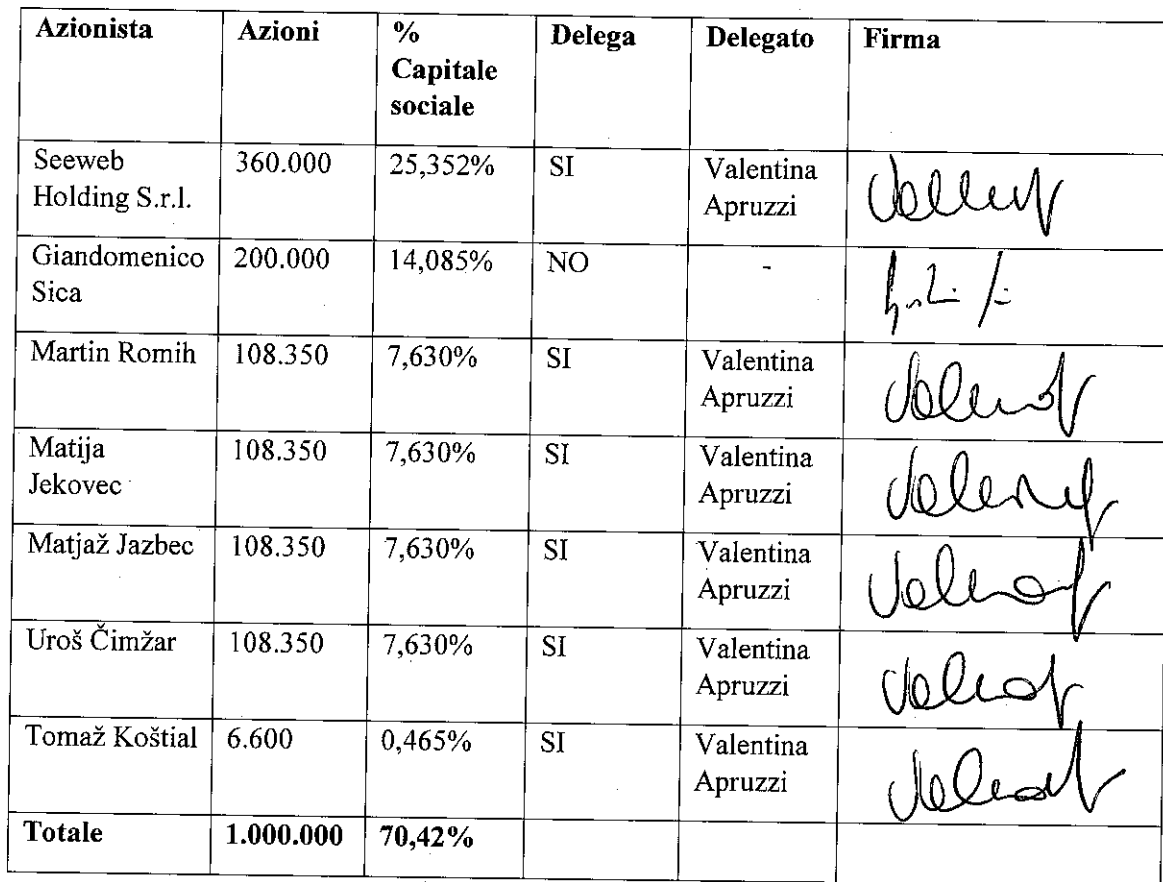 Azionista Azioni % Capitale sociale Delega Delegato Firma
Seeweb Holding S.r.l. 360.000 25,352% SI Valentina Apruzzi
Giandomenico Sica 200.000 14,085% NO -
Martin Romih 108.350 7,630% SI Valentina Apruzzi
Matija Jekovec 108.350 7,630% SI Valentina Apruzzi
Matjaž Jazbec 108.350 7,630% SI Valentina Apruzzi
Uroš Čimžar 108.350 7,630% SI Valentina Apruzzi
Tomaž Koštial 6.600 0,465% SI Valentina Apruzzi
Totale 1.000.000 70,42%